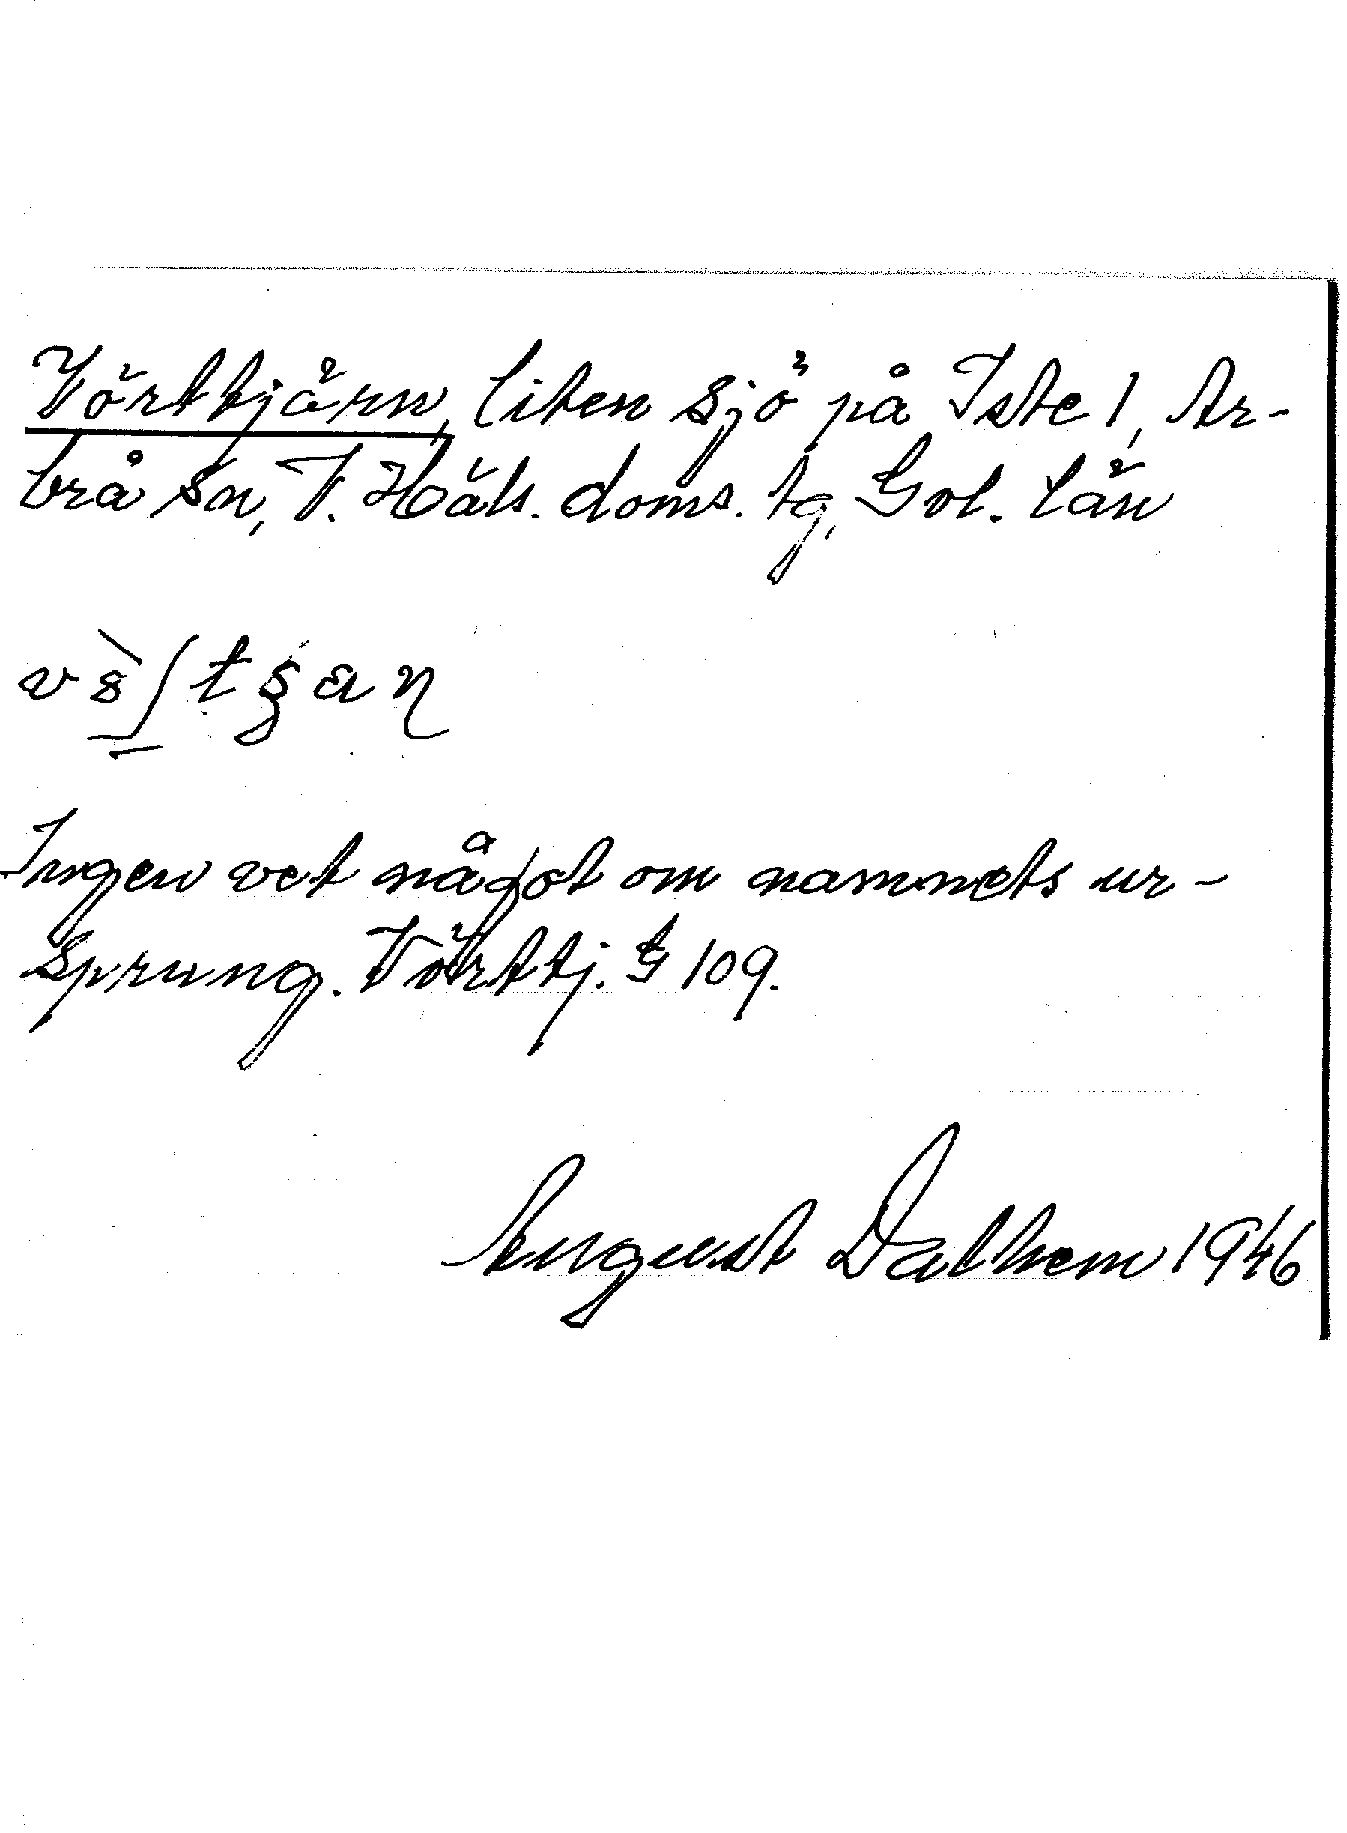 Vörttjärn, liten sjö på Iste 1, Ar-
brå sn, V. Häls. doms. tg, Gvl. län
Ingen vet något om namnets ur-
sprung. Vörttj. 109.
August Dalhem 1946